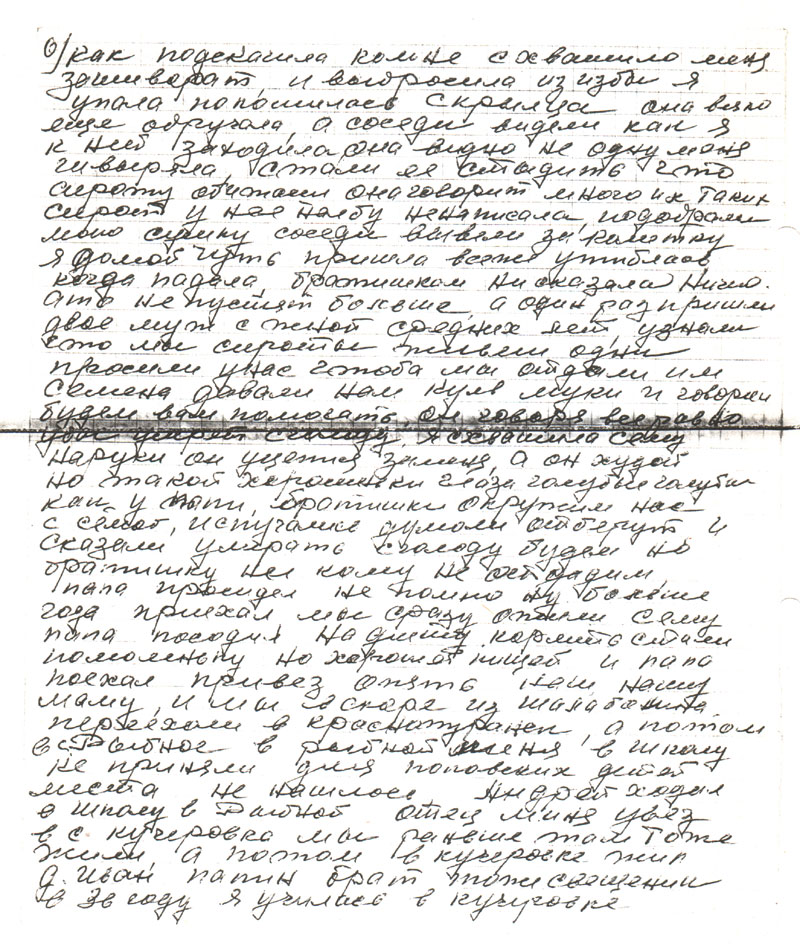 6) как подскачила комне схватила меня
зашиворат, и выбросила из избы я
упала попотилась скрылца она вехо
еще обругала, а соседи видели как я
к ней заходила, она видно не одну меня
швыряла, стали ее стыдить что
сироту обижаеш она говорит много их таких
сирот у нее налбу ненаписала, подобрали
мою сумку соседи вывели за калитку
я домой чуть пришла всеже ушиблась
когда падала, братишкам ни сказала ничего.
ато не пустят больше, а один раз пришли
двое муж с женой средних лет, узнали
что мы сироты живем одни
просили унас чтоба мы отдали им
Семена давали нам куль муки и говорили
будем вам помогать, он говоря всеравно
умрет сголоду, я схватила сему
наруки он уцепил заменя, а он худой
но такой хорошинки глаза голубые голубые
как у папи, братишки окружили нас
с семой, испугались думоли отберут и
сказали умирать сголоду будем но
братишку не кому не отдадим,
папа просидел не помню ну больше
года приехал мы сразу ожили сему
папа посодил на диету кормить стали
помоленьку но хорошей пищей и папа
поехал привез опять нам нашу
маму, и мы вскоре из шалаболина
переехали в краснатуранск, а потом
в с Рыбное в рыбной меня в школу
не приняли для поповских детей
места не нашлось Андрей ходил
в школу в Рыбной отец миня увез
в с кучеровка мы раньше там тоже
жили, а потом в кучеровке жил
д. Иван папин брат тоже священник
в 30 году я училась в кучеровке